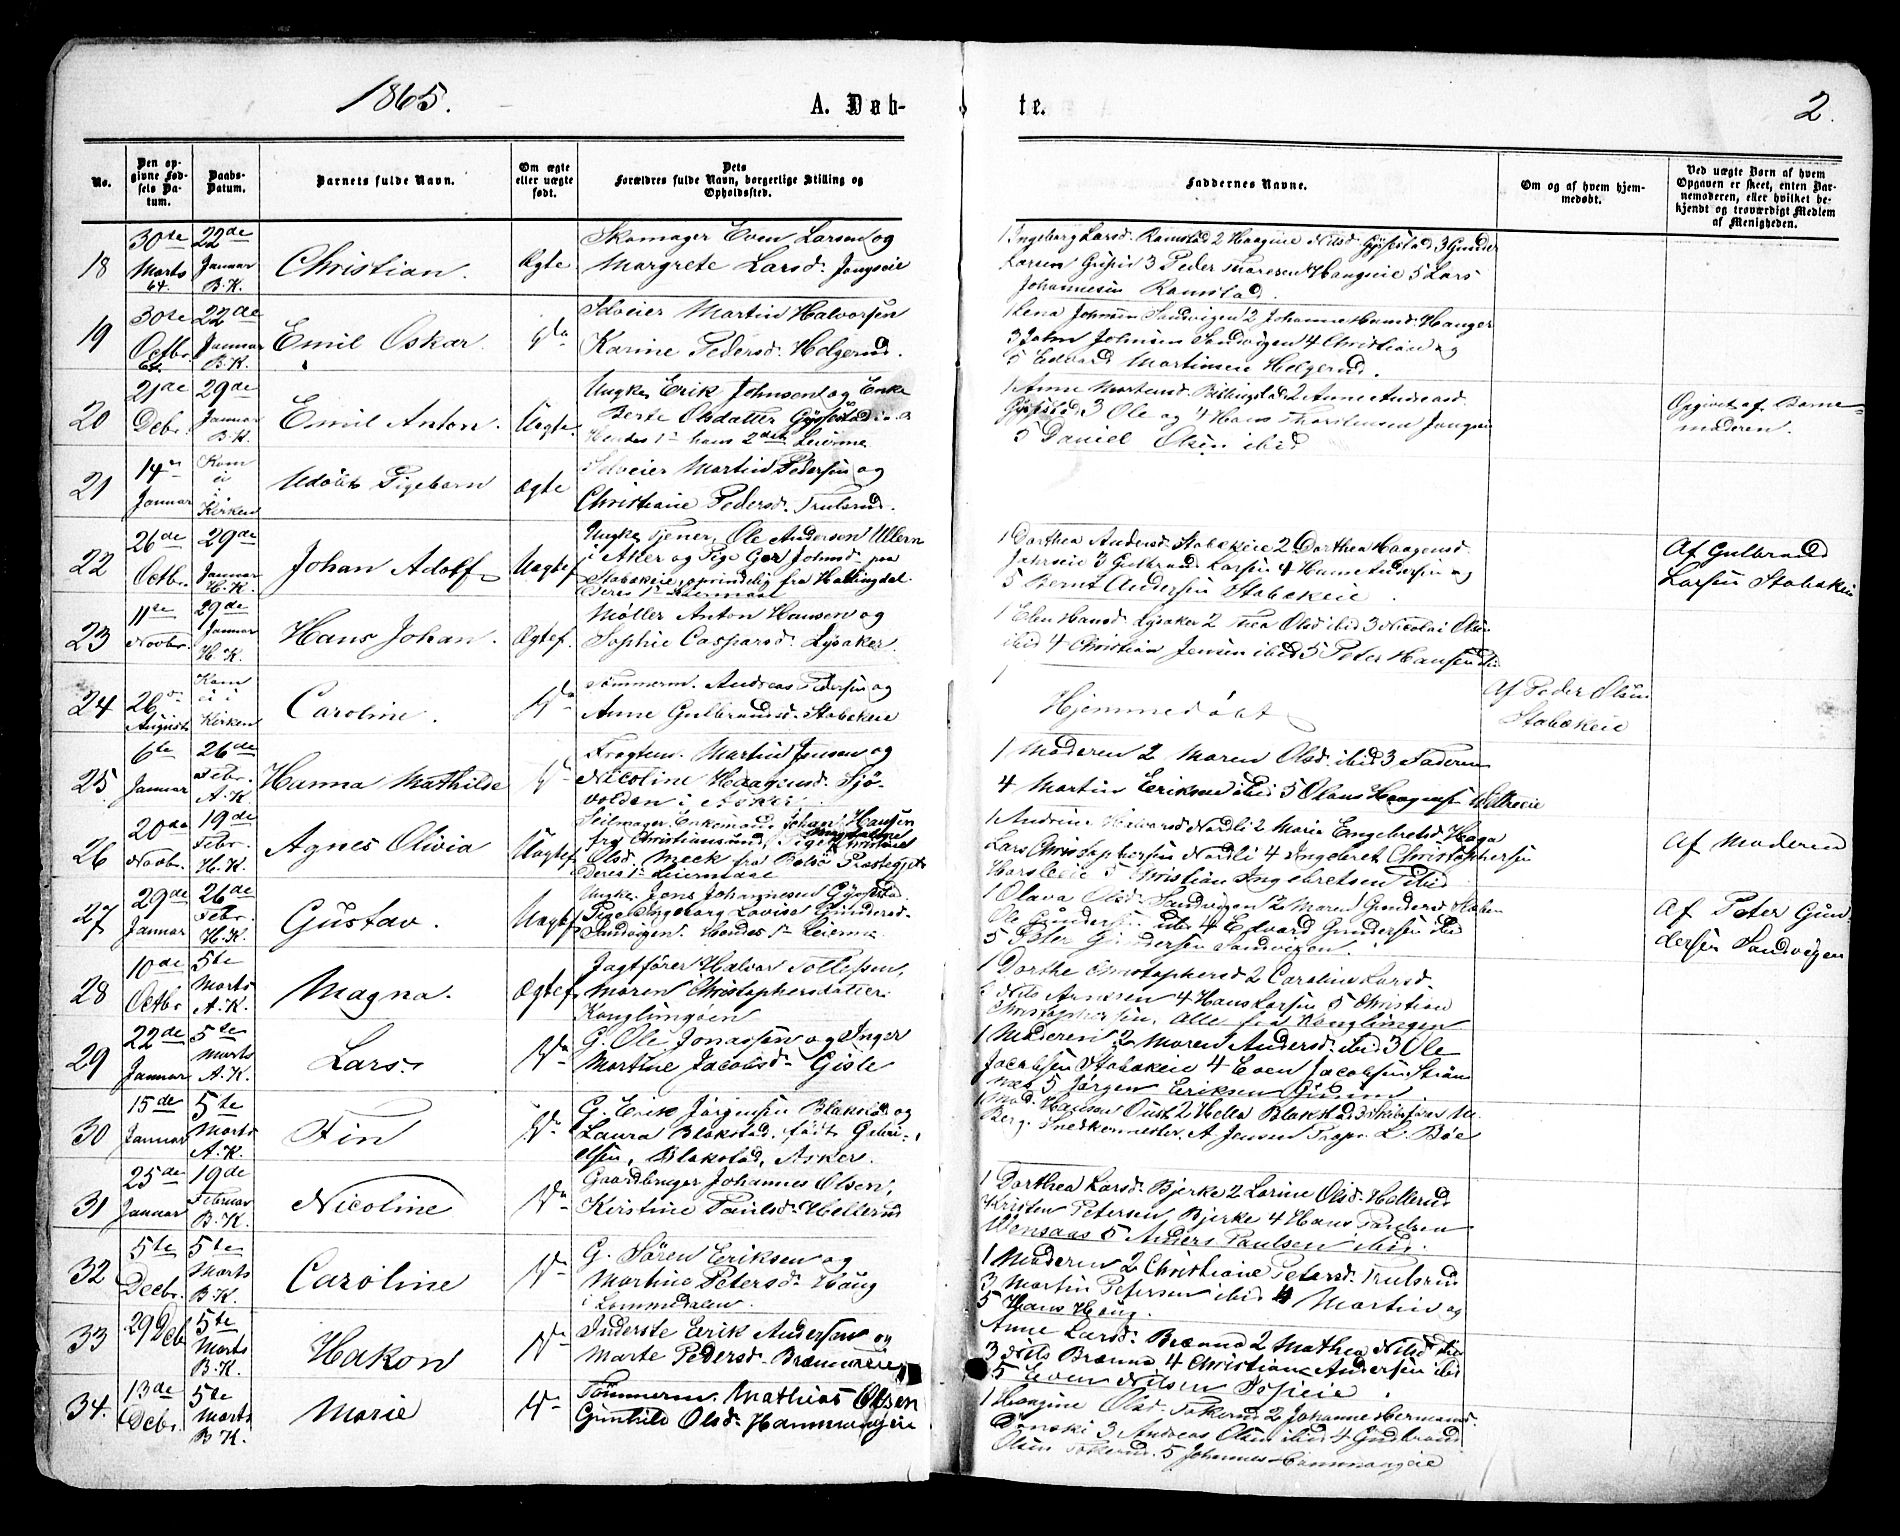 1865.
A. Døb-
te.
2.
No.
Den op-
givne Fød-
sels Da-
tum.
Daabs-
Datum.
Barnets fulde Navn.
Om ægte
eller uægte
født.
Dets
Forældres fulde Navn, borgerlige Stilling og
Opholdssted.
Faddernes Navne.
Om og af hvem hjem-
medøbt.
Ved uægte Børn af hvem
Opgaven er skeet, enten Bar-
nemoderen, eller hvilket be-
kjendt og troværdigt Medlem
af Menigheden.
18
30te
Marts
64.
22de
Januar
B.K.
Christian.
Ægte
Skomager Even Larsen og
Margrete Larsd.
1 Ingeborg Larsd. Ramstad 2 Haagine Nilsd. 3 Gunder
Larsen 3 Peder 5 Lars
Johannesen Ramstad.
19
30te
Octbr.
64.
22de
Januar
B.K.
Emil Oskar.
Do
Selveier Martin Halvorsen
Karine Pedersd. Helgerud.
1 Lena Johnsen Sandvigen 2 Johanne Hauger
3 John Johnsen Sandvigen 4 Christian og
5 Edvard Martinsen Helgerud.
20
21de
Debr.
29de
Januar
B.K.
Emil Anton.
Uægte.
Ungk. Erik Johnsen og Enke
Berte Olsdatter
Hendes 1te hans 2det Leierm.
1 Anne Mortensd. Billingstad 2 Anne Andreasd.
3 Ole og 4 Hans Thorstensen
5 Daniel Olsen ibid
Opgivet af Barne-
moderen.
21
14de
Januar
Kom
ei
i
Kirken
Udøbt Pigebarn
ægte
Selveier Martin Pedersen og
Christiane Pedersd. Trulsrud.
22
26de
Octbr.
29de
Januar
H.K.
Johan Adolf
Uægte
Ungk. Tjener, Ole Andersen Ullern
i Aker og Pige Johnsd. paa
Stabekeie, oprindelig fra Hallingdal.
Deres 1te Leiermaal
1 Dorthea Andersd. Stabekeie 2 Dorthea Haagensd.
3 Gulbrand Larsen 4 Hans Andersen og
5 Bernt Andersen Stabekeie.
Af Gulbrand
Larsen Stabekeie
23
11te
Novbr.
29de
Januar
H.K.
Hans Johan.
Ægtef.
Møller Anton Hansen og
Sophie Caspersd. Lysaker.
1 Elen Hansd. Lysaker 2 Olsd. ibid 3 Nicolai Olsen
ibid 4 Christian Jensen ibid 5 Peter Hansen ibid
24
26de
August
Kom
ei i
Kirken
Caroline.
Do
Tømmerm. Andreas Pedersen og
Anne Gulbrandsd. Stabekeie
1
Hjemmedøbt
Af Peder Olsen
Stabekeie
25
6te
Januar
26de
Febr.
A.K.
Hanna Mathilde
Do
Martin Jensen og
Nicoline Haagensd. Sjø-
volden i Asker
1 Moderen 2 Maren Olsd. ibid 3 Faderen
4 Martin Eriksen ibid 5 Olaus Haagensen
26
20de
Novbr.
19de
Febr.
H.K.
Agnes Olivia
Uægtef
Seilmager, Enkemand, Johan Hansen
fra Christiansund, Pige Christine
Magdalene
Olsd. Meek fra Bolsø Præstegj.
Deres 1te Leiermaal
1 Andrine Halvorsd. Nordli 2 Marie Engebretsd. Haga
Lars Christophersen Nordli 4 Ingebret Christophersen
5 Christian Ingebretsen ibid.
Af Moderen
27
29de
Januar
26de
Febr.
H.K.
Gustav.
Uægtef
Ungk. Jens Johannesen
Pige Ingeborg Lovise Gundersd.
Sandvigen. Hendes 1te Leierm.
1 Olava Olsd. Sandvigen 2 Maren Gundersd.
Ole Gundersen ibid 4 Edvard Gundersen ibid
5 Peter Gundersen Sandvigen.
Af Peter Gun-
dersen Sandvigen
28
10de
Octbr.
5te
Marts
A.K.
Magna.
Ægtef
Jagtfører Halvor Tollefsen,
Maren Christophersdatter
Konglungøen
1 Dorthe Christophersd. 2 Caroline Larsd.
3 Nils Arnesen 4 Hans Larsen 5 Christian
Christophersen. Alle fra Konglungen
29
22de
Januar
5te
Marts
A.K.
Lars
Do
G. Ole Jonassen og Inger
Martine Jacobsd. Gisle
1 Moderen 2 Maren Andersd. ibid 3 Ole
Jacobsen Stabekeie 4 Even Jacobsen Strøm
5 Jørgen Eriksen
30
15de
Januar
5te
Marts
A.K.
Fin
Do
G. Erik Jørgensen Blakstad og
Laura Blakstad, født Gabri-
elsen, Blakstad, Asker.
1 Mad. Hansen Oust 2 Helle Blakstad 3
Berg. Snedkermester A. Jensen Propr. L. Bøe
31
25de
Januar
19de
Februar
B.K.
Nicoline
Do
Gaardbruger Johannes Olsen,
Kirstine Paulsd. Hellerud
1 Dorthea Larsd. Bjerke 2 Larine Olsd. Hellerud
Kristen Petersen Bjerke 4 Hans Paulsen
5 Anders Paulsen ibid.
32
5te
Decbr.
5te
Marts
B.K.
Caroline
Do
G. Søren Eriksen og
Martine Petersd. Haug
i Lommedalen.
1 Moderen 2 Christiane Petersd. Trulsrud
3 Martin Petersen ibid 4 Martin og
5 Hans Haug.
33
29 Decb
5te
Marts
B.K.
Hakon
Do
Inderste Erik Andersen og
Marte Pedersd.
Anne Larsd. Brænna 2 Mathea Nilsd. ibid
3 Nils Brænna 4 Christian Andersen ibid
5 Even Nilsen
34.
13de
Debr.
5te
Marts
B K.
Marie
Do
Tømmerm. Mathias Olsen
Gunhild Olsd. Hammangeie
1 Haagine Olsd. Tokerud 2 Johanne Hermansd.
3 Andreas Olsen ibid 4 Gudbrand
Olsen Tokerud. 5 Johannes Hammangeie